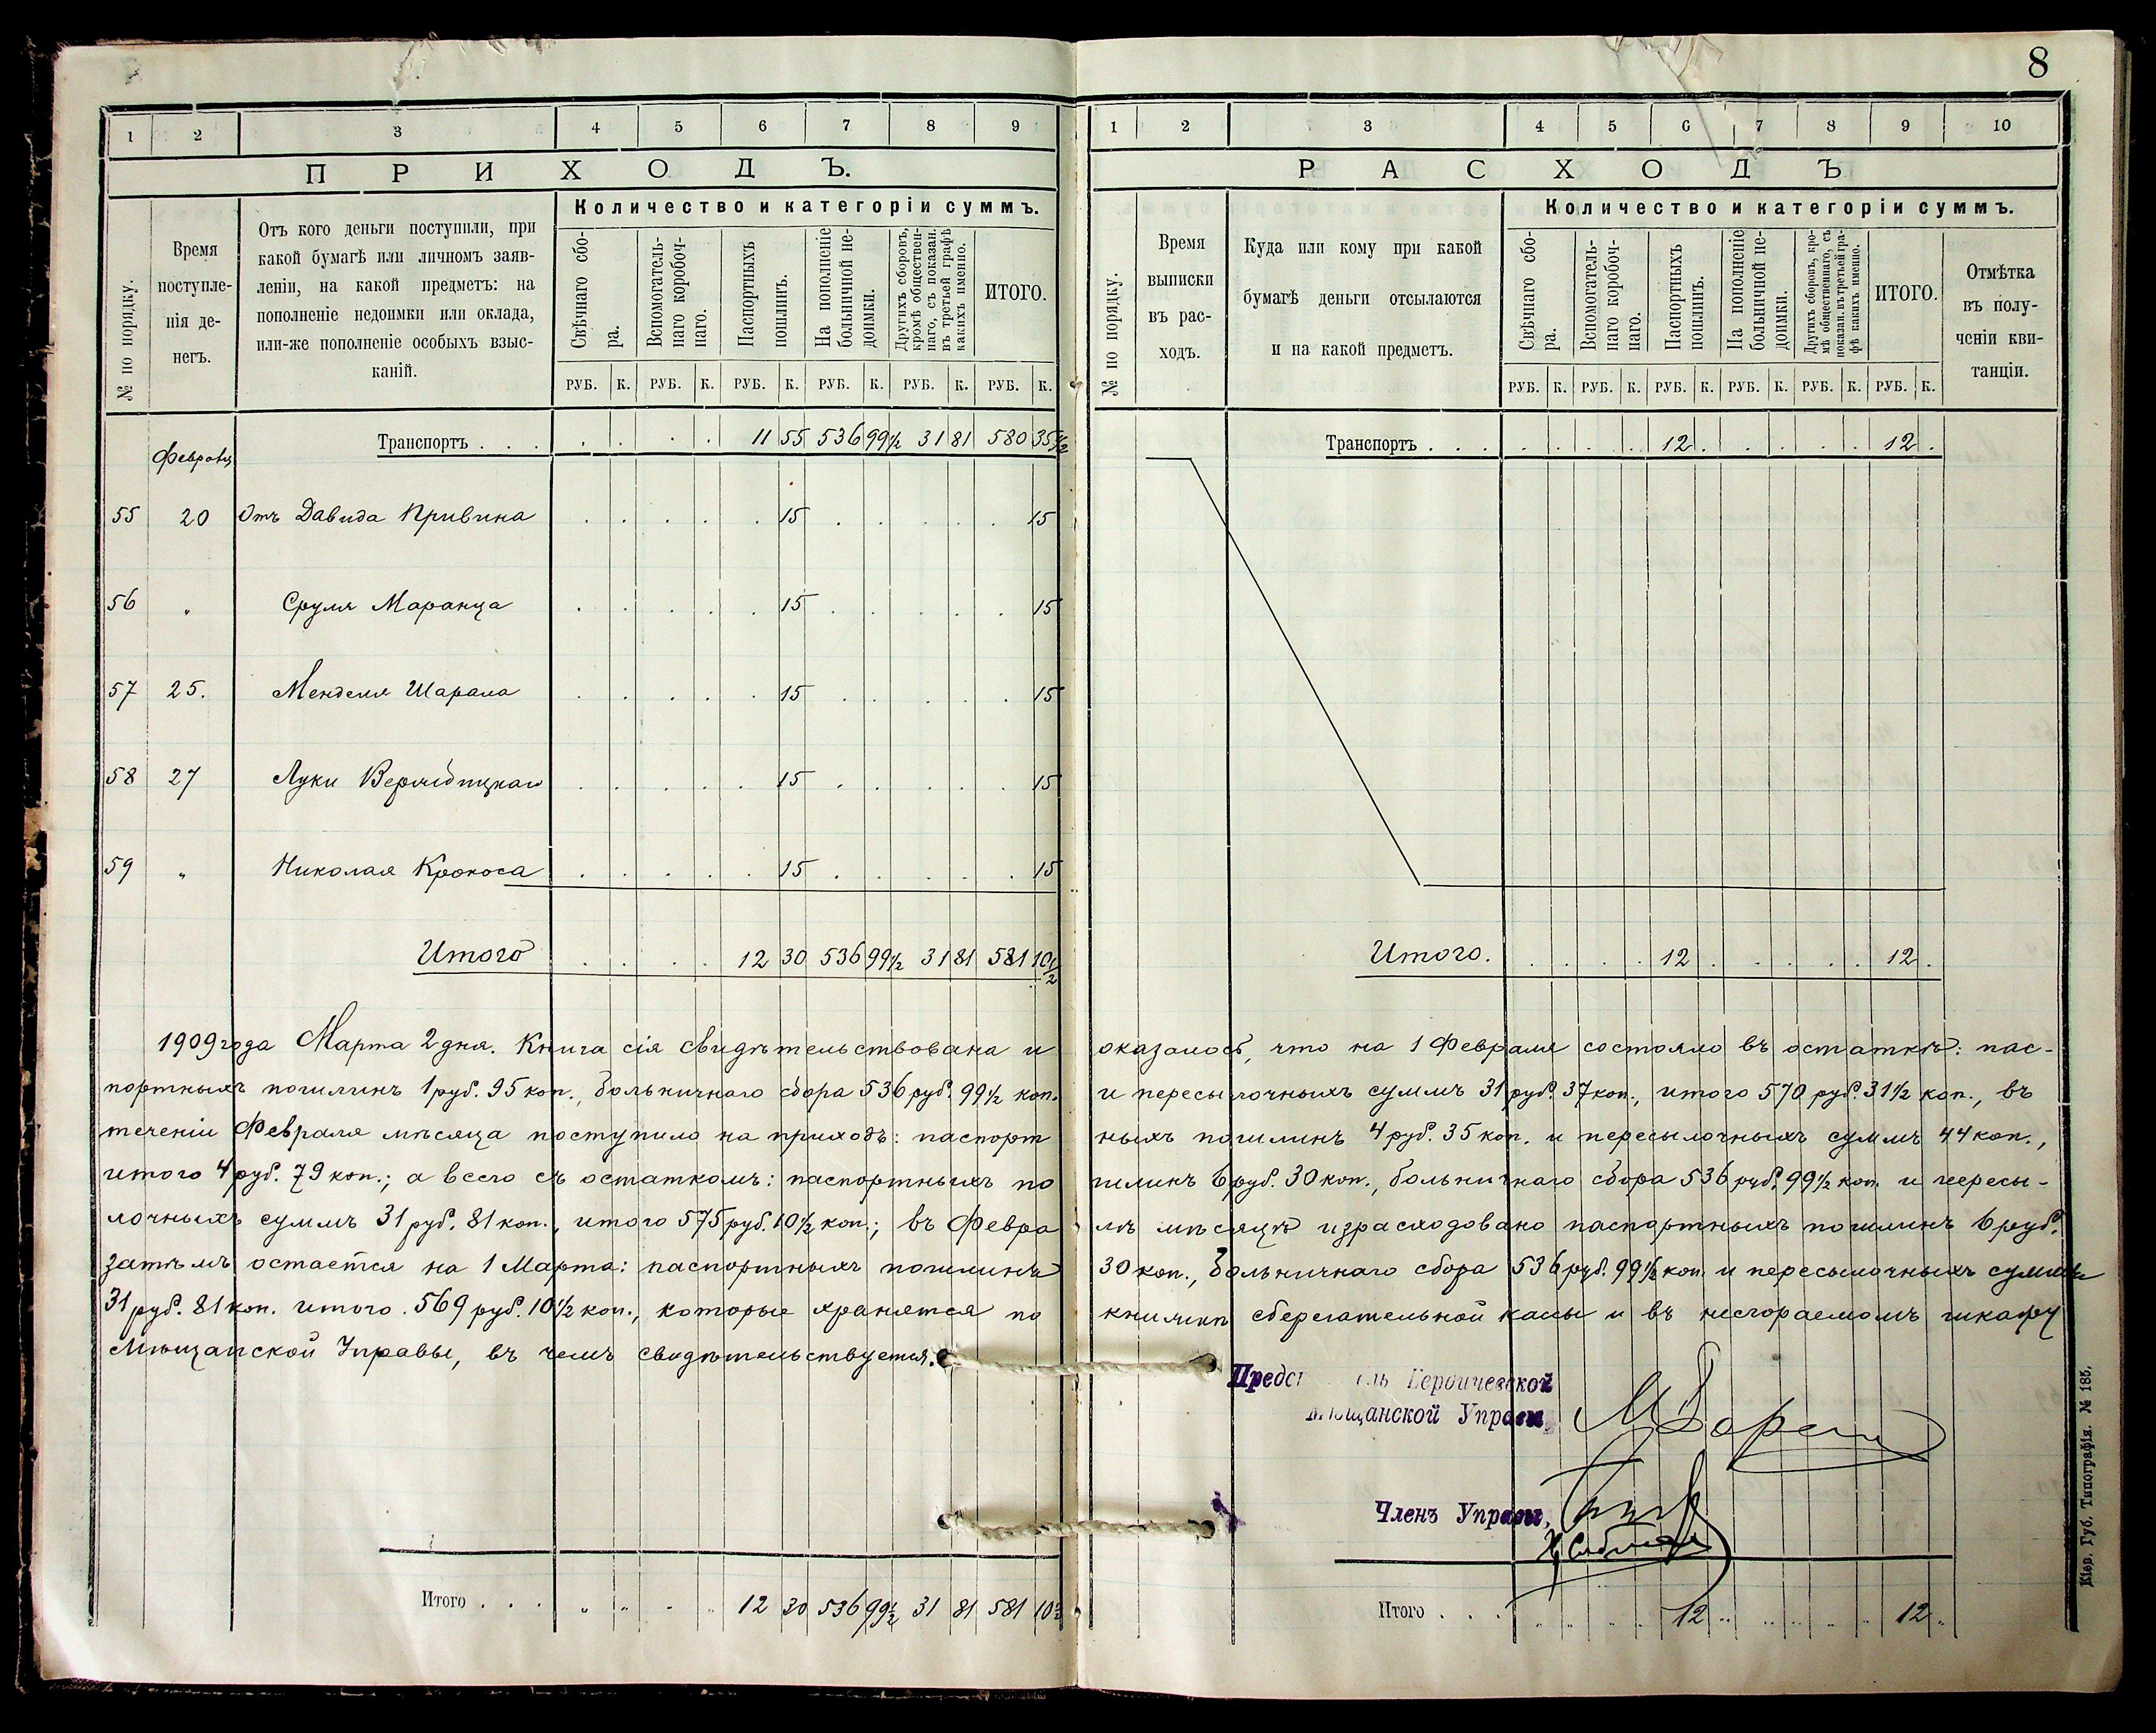 8
1 2 3 4 5 6 7 8 9
ПРИХОДЪ.
№ по порядку.
Время поступле-
нія де-
негъ.
Отъ кого деньги поступили, при
какой бумагѣ или личномъ заяв-
леніи, на какой предметъ: на
пополненіе недоимки или оклада,
или-же пополненіе особыхъ взыс-
каній.
Количество и категоріи суммъ.
Свѣчнаго сбо-
ра.
Вспомогатель-
наго коробоч-
наго.
Паспортныхъ
пошлинъ.
На пополненіе
больничной не-
доимки.
Другихъ сборовъ,
кромѣ обществен-
наго, съ показан.
въ третьей графѣ
какихъ именно.
ИТОГО.
РУБ. К. РУБ. К. РУБ. К. РУБ. К. РУБ. К. РУБ. К.
Транспортъ . . . 11 55 536 99½ 31 81 580 35½
55 20 Отъ Давида Кривина 15 15
56 " Сруля Маранца 15 15
57 25. Менделя 15 15
58 27 Луки 15 15
59 " Николая Крокоса 15 15
Итого 12 30 536 99½ 31 81 581 10½
1909 года Марта 2 дня. Книга сія свидѣтельствована и
портныхъ пошлинъ 1 руб. 95 коп., больничнаго сбора 536 руб. 99½ коп.
теченіи Февраля мѣсяца поступило на приходъ: паспорт
итого 4 руб. 79 коп.; а всего съ остаткомъ: паспортныхъ по
лочныхъ суммъ 31 руб. 81 коп., итого 575 руб. 10½ коп.; въ Февра
затѣмъ остается на 1 Марта: паспортныхъ пошлинъ
31 руб. 81 коп. итого. 569 руб. 10½ коп., которые хранятся по
Мѣщанской Управы, въ чемъ свидѣтельствуется.
Итого . . . 12 30 536 99½ 31 81 581 10½
1 2 3 4 5 6 7 8 9 10
РАСХОДЪ
№ по порядку.
Время
выписки
въ рас-
ходъ.
Куда или кому при какой
бумагѣ деньги отсылаются
и на какой предметъ.
Количество и категоріи суммъ.
Свѣчнаго сбо-
ра.
Вспомогатель-
наго коробоч-
наго.
Паспортныхъ
пошлинъ.
На пополненіе
больничной не-
доимки.
Другихъ сборовъ, кро-
мѣ общественнаго, съ
показан. въ третьей гра-
фѣ какихъ именно.
ИТОГО.
Отмѣтка
въ полу-
ченіи кви-
танціи.
РУБ. К. РУБ. К. РУБ. К. РУБ. К. РУБ. К. РУБ. К.
Транспортъ . . . 12 . 12 .
Итого. 12 . 12 .
оказалось, что на 1 Февраля состояло въ остаткѣ: пас-
и пересылочныхъ суммъ 31 руб. 37 коп., итого 570 руб. 31½ коп., въ
ныхъ пошлинъ 4 руб. 35 коп. и пересылочныхъ суммъ 44 коп.,
шлинъ 6 руб. 30 коп., больничнаго сбора 536 руб. 99½ коп. и пересы-
лѣ мѣсяцѣ израсходовано паспортныхъ пошлинъ 6 руб.
30 коп., больничнаго сбора 536 руб. 99½ коп. и пересылочныхъ суммъ
книжкѣ сберегательной кассы и въ несгораемомъ шкафу
Бердичевской
Мѣщанской Управы,
Членъ Управы,
Итого . . . 12 12
Кіев. Губ. Типографія. № 185.